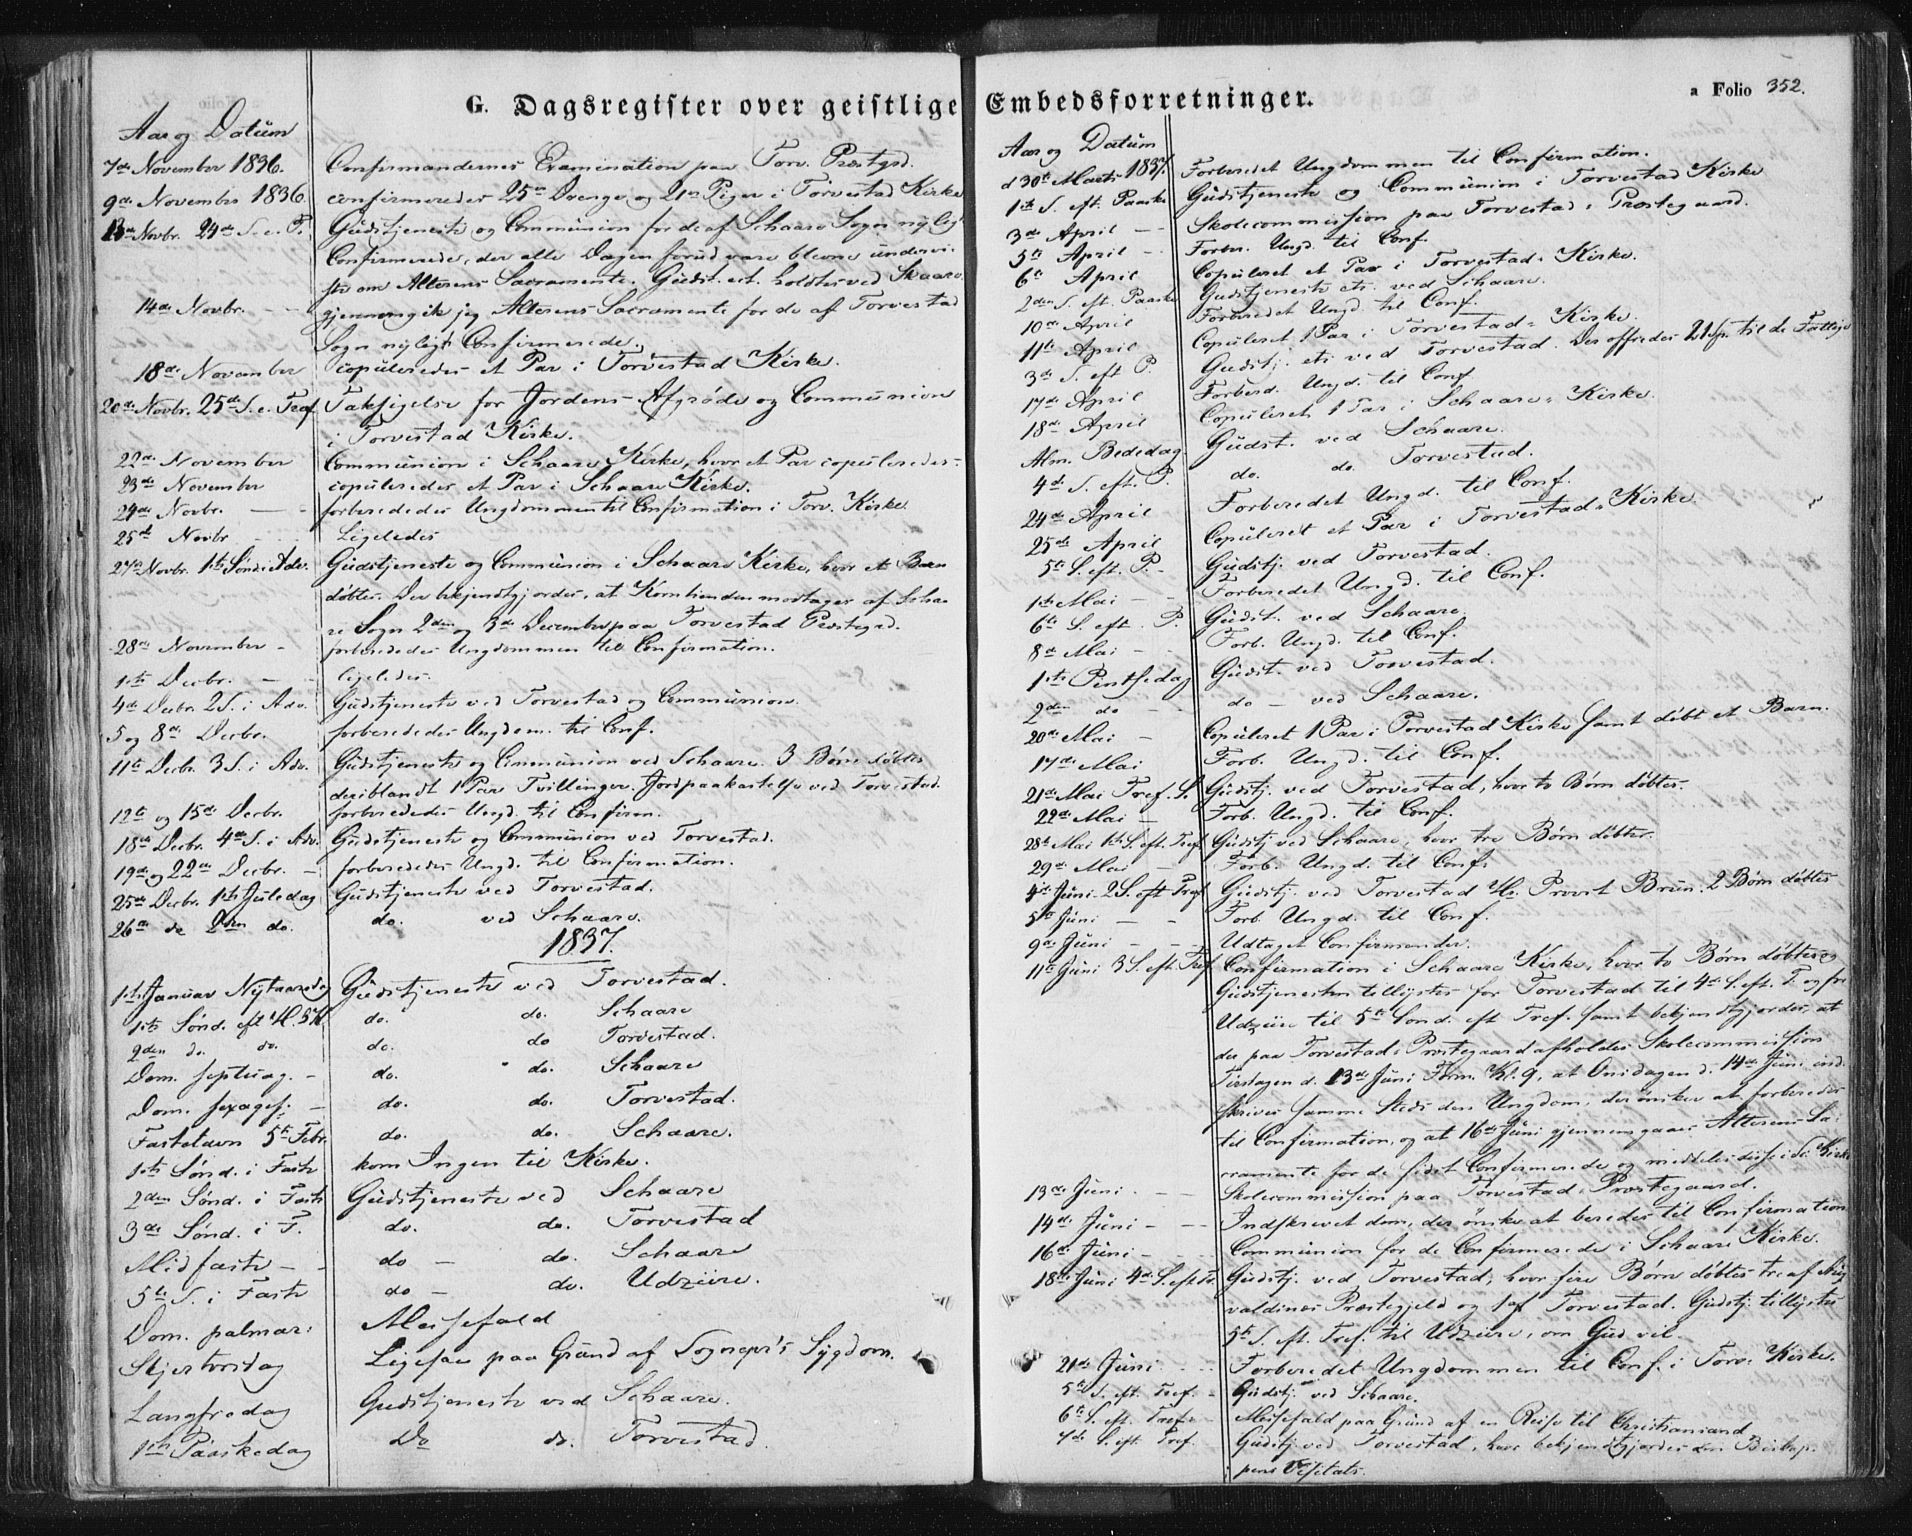 G. Dagsregister over geistlige Embedsforretninger.
a Folio 352.
Aar og Datum
7de November 1836. Confirmandernes Examination paa Torv. Præstgrd.
9de November 1836. confirmeredes 25de Drenge og 21de Piger i Torvestad Kirke
13de Novbr. 24de S. e. T. Gudstjeneste og Communion for de af Schaare Sogn nylig
Confirmerede, der alle Dagen forud vare blevne undervi-
ste om Alterens Sacramente. Gudst. ect. holdtes ved Skaare.
14de Novbr. - - gjennemgik jeg Alterens Sacramente for de af Torvestad
Sogn nyligt Confirmerede.
18de November copuleredes et Par i Torvestad Kirke.
20de Novbr. 25de S. e. Tref. Taksigelse for Jordens Afgrøde og Communion
i Torvestad Kirke.
22de November Communion i Schaare Kirke, hvor et Par copuleredes.
23de November copuleredes et Par i Schaare Kirke.
24de Novbr. - - forberededes Ungdommen til Confirmation i Torv. Kirke.
25de Novbr - - Ligeledes
27de Novbr. 1ste Sønd. i Adv. Gudstjeneste og Communion i Schaare Kirke, hvor et Barn
døbtes. Der bekjendtgjordes, at Korntienden modtages af Schaa-
re Sogn 2den og 3de December paa Torvestad Præstegrd.
28de November - forberededes Ungdommen til Confirmation.
1ste Decbr. - - ligeledes.
4de Decbr. 2 S. i Adv. Gudstjeneste ved Torvestad og Communion.
5 og 8de Decbr. forberededes Ungdom. til Conf.
11te Decbr. 3 S. i Adv. Gudstjeneste og Communion ved Schaare. 3 Børn døbtes
deriblandt 1 Par Tvillinger. Jordpaakastelse ved Torvestad.
12te og 15de Decbr. forberededes Ungd. til Confirm.
18de Decbr. 4de S. i Adv. Gudstjeneste og Communion ved Torvestad.
19de og 22de Decbr. - forberededes Ungd. til Confirmation.
25de Decbr. 1ste Juledag Gudstjeneste ved Torvestad.
26de do 2den do. do. ved Schaare.
1837.
1ste Januar Nytaarsdag Gudstjeneste ved Torvestad.
1ste Sønd. eft. H. 3 K. do. do. Schaare
2den do. do. do. do Torvestad.
Dom. septuag. - do. do. Schaare
Dom. sexages. - do. do. Torvestad.
Fastelavn 5te Febr. do. do. Schaare.
1ste Sønd. i Faste kom Ingen til Kirke.
2den Sønd. i Faste Gudstjeneste ved Schaare
3de Sønd. i F. do. do. Torvestad
Midfaste - - do - do. Schaare
5te S. i Faste do - do. Udzüre.
Dom. palmar: Messefald
Skjertorsdag Ligesaa paa Grund af Sognepr's Sygdom.
Langfredag Gudstjeneste ved Schaare.
1ste Paaskedag Do do. Torvestad.
Aar og Datum
d 30te Marts 1837. Forberedet Ungdommen til Confirmation.
1ste S. eft. Paaske Gudstjeneste og Communion i Torvestad Kirke
3de April - - Skolecommission paa Torvestad Præstegaard.
5te April - Forber. Ungd. til Conf.
6te April Copuleret et Par i Torvestads Kirke.
2den S. eft. Paaske Gudstjeneste etc. ved Schaare.
10de April Forberedet Ungd. til Conf.
11te April Copuleret 1 Par i Torvestads Kirke.
3de S. eft P. Gudstj. etc ved Torvestad. Der offredes 21 til de Fattige
17de April Forbered. Ungd. til Conf.
18de April Copuleret 1 Par i Schaare Kirke.
Alm. Bededag Gudst. ved Schaare.
4de S. eft. P. do. do. Torvestad.
24de April Forberedet Ungd. til Conf.
25de April Copuleret et Par i Torvestads Kirke
5te S. eft. P. - Gudstj. ved Torvestad.
1ste Mai - - Forberedet Ungd. til Conf.
6te S. eft. P. Gudst. ved Schaare.
8de Mai - Forb. Ungd. til Conf.
1ste Pintsedag Gudst. ved Torvestad.
2den do - - do - ved Schaare.
20de Mai - Copuleret 1 Par i Torvestad Kirke samt døbt et Barn.
17de Mai Forb. Ungd. til Conf.
21de Mai Tref. S. Gudstj. ved Torvestad, hvor to Børn døbtes.
22de Mai - Forb. Ungd. til Conf.
28de Mai 1ste S. eft. Tref. Gudstj ved Schaare, hvor tre Børn døbtes.
29de Mai - - Forb. Ungd. til Conf.
4de Juni 2 S. eft Tref Gudstj. ved Torvestad Hr. Provst Brun. 2 Børn døbtes
5te Juni - - Forb. Ungd. til Conf.
9de Juni - - Udtaget Confirmander.
11te Juni 3 S. eft. Tref. Confirmation i Schaare Kirke, hvor to Børn døbtes og
Gudstjenesten tillystes for Torvestad til 4de S. eft. T. og for
Udzüre til 5te Sønd. eft Tref. samt bekjendtgjordes, at
der paa Torvestads Præstegaard afholdes Skolecommission
Tirsdagen d. 13de Juni Form. Kl. 9, at Onsdagen d. 14de Juni ind-
skrives samme Steds den Ungdom, der ønsker at forberedes
til Confirmation, og at 16de Juni gjennemgaaes Alterens Sa-
cramente for de sidst Confirmerede og meddeles disse i Sc. Kirke
13de Juni. - - Skolecommission paa Torvestad Præstegaard.
14de Juni - - Indskrevet dem, der ønske at beredes til Confirmation
16de Juni - - Communion for de Confirmerede i Schaare Kirke.
18de Juni 4de S. eft Tr. Gudstj. ved Torvestad, hvor fire Børn døbtes tre af Aug-
valdsnes Præstegjeld og 1 af Torvestad. Gudstj. tillystes
5te S. eft. Tref. til Udzüre, om Gud vil.
21de Juni - - Forberedet Ungdommen til Conf. i Torv. Kirke.
5te S. eft. Tref. - Gudstj. ved Schaare.
6te S. eft. Tref. - Messefald paa Grund af en Reise til Christiansand
7de S. eft. Tref. Gudstj ved Torvestad, hvor bekjendtgjordes om Biskop-
pens Visitats.